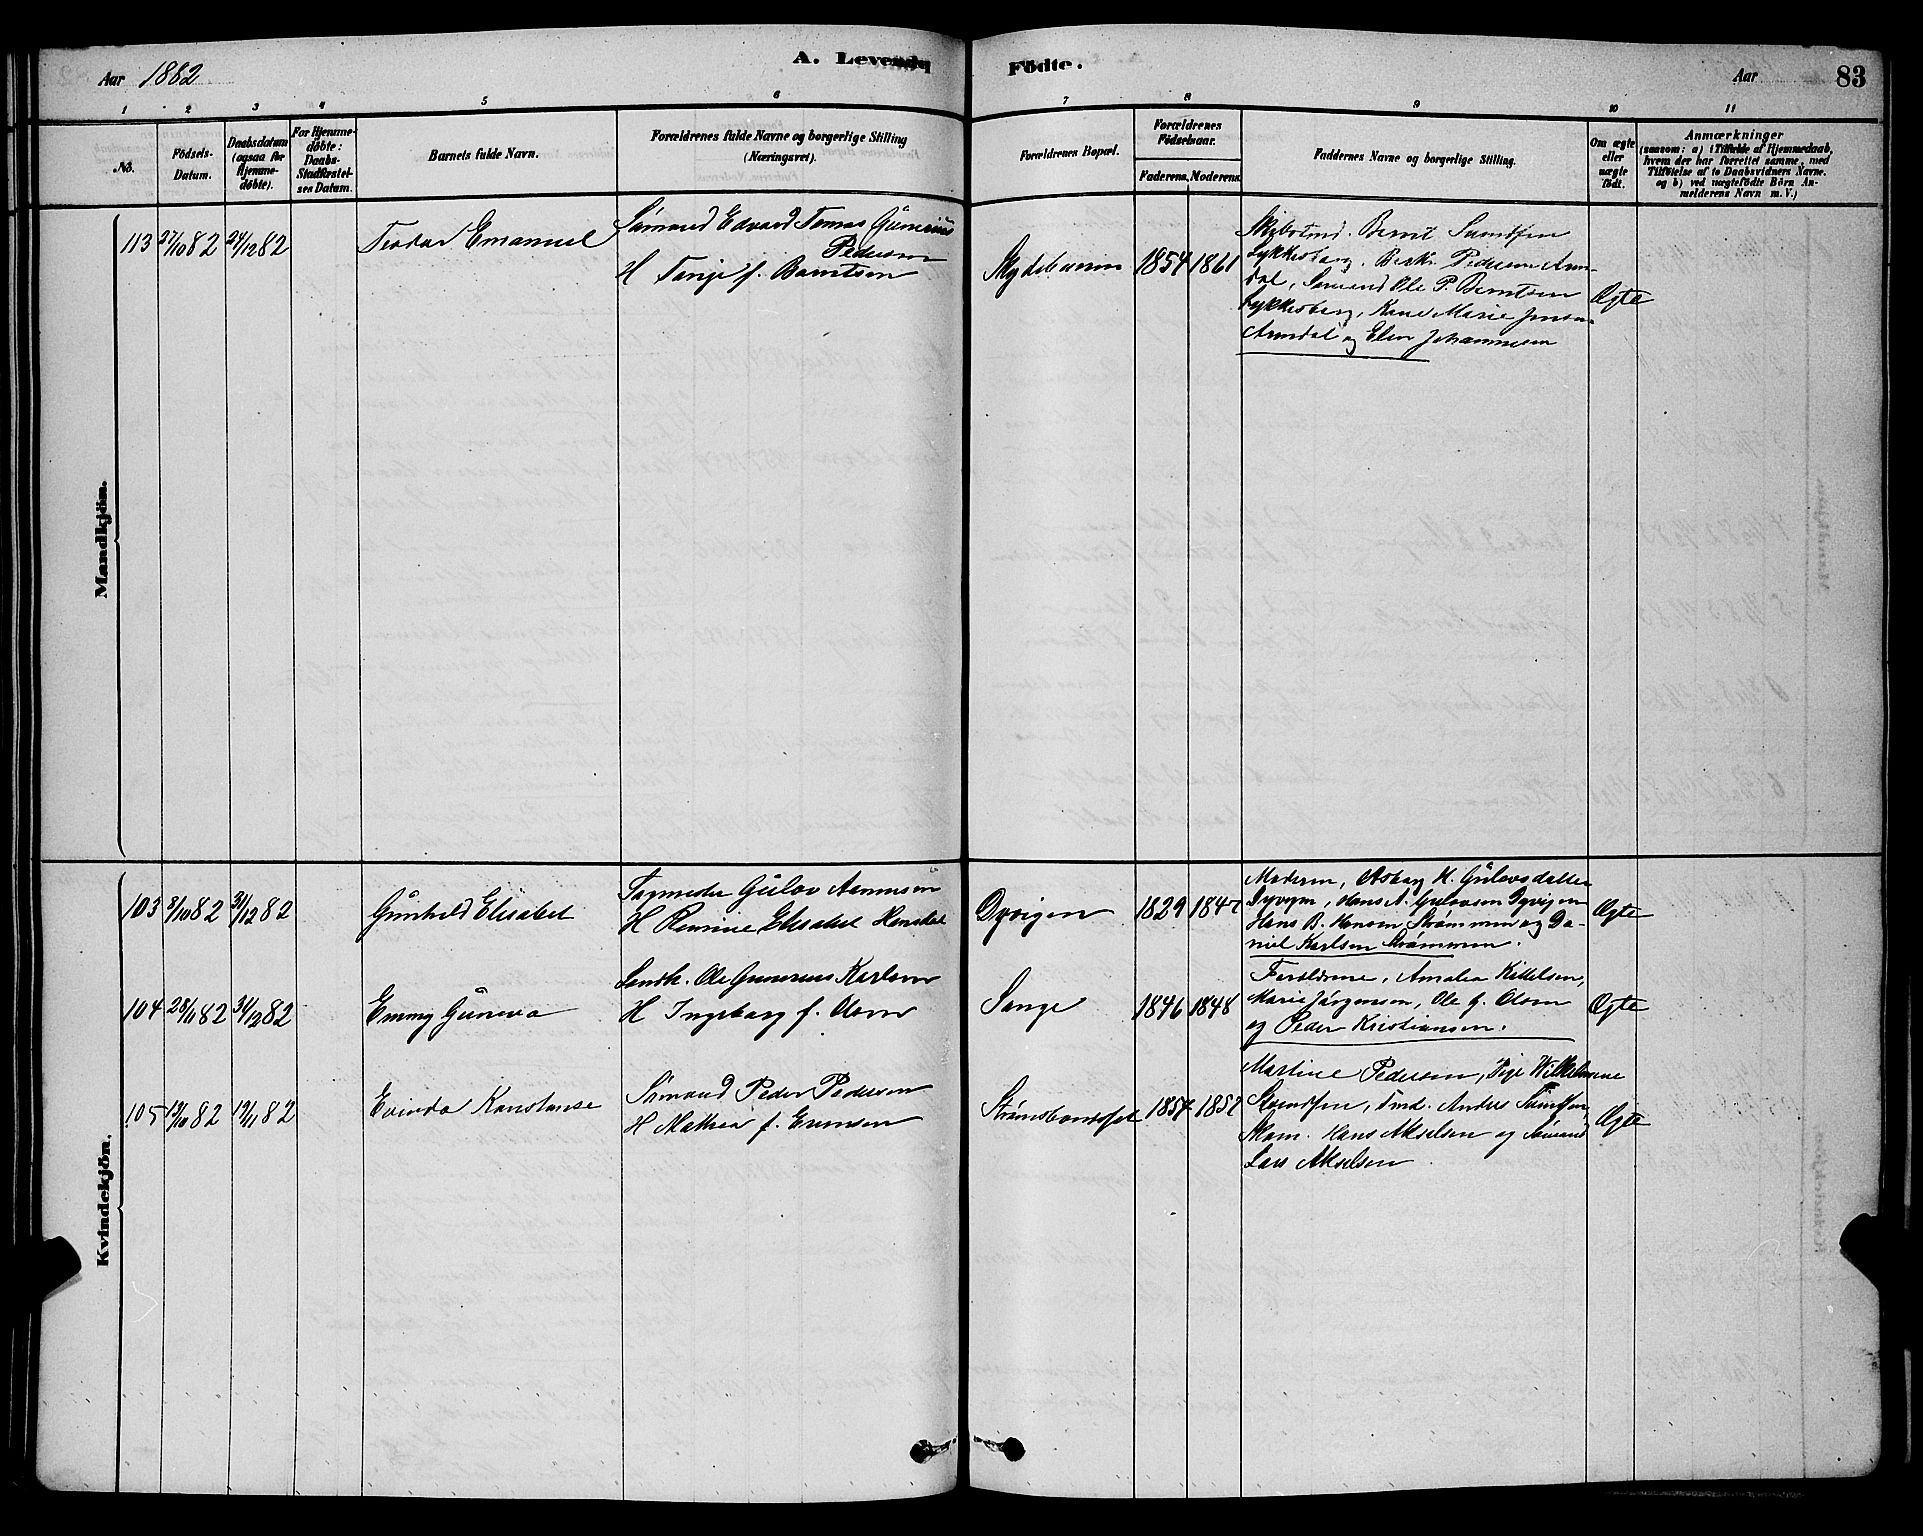 Aar 1882
A. Levende
Födte.
Aar
83
1 2 3 4 5 6 7 8 9 10 11
No.
Födsels-Datum.
Daabsdatum (ogsaa for Hjemmedöbte).
For Hjemmedöbte: Daabs-Stadfæstelses Datum.
Barnets fulde Navn.
Forældrenes fulde Navne og borgerlige Stilling (Næringsvei).
Forældrenes Bopæl.
Forældrenes Födselsaar.
Faderens. Moderens.
Faddernes Navne og borgerlige Stilling.
Om ægte eller uægte födt.
Anmærkninger
(saasom: a) i Tilfælde af Hjemmedaab, hvem der har forrettet samme, med Tilföielse af to Daabsvidners Navne. og b) ved uægtefödte Börn Anmelderens Navn m. V.)
Mandkjön.
113 27/10 82 24/12 82
Teodor Emanuel
Sömand Edvard Tomas Gunerius
Pedersen
H Tonje f. Berntsen
1854 1861
Skibstmd. Bernt
Lykkesborg.
Pedersen Arendal, Sömand Ole P. Berntsen
Lykkesborg, Marie Jensen
Arendal og Elen Johannesen
Ægte
Kvindekjön.
103 8/10 82 31/12 82
Gunhild Elisabet
Gulov Aanensen
H Elisabet
Dyvigen
1829 1847
Moderen, Asborg H. Gulovsdatter
Dyvigen, Hans A. Gulovsen Dyvigen
Hans B. Hansen Strömmen og Daniel Karlsen Strömmen.
Ægte
104 28/11 82 31/12 82
Emmy Guneva
Ole Gunerius Karlsen
H Ingeborg f. Olsen
Songe
1846 1848
Forældrene, Amalia Kittelsen,
Marie Jörgensen, Ole G. Olsen
og Peder Kristiansen.
Ægte
105 12/10 82 19/11 82
Evinda Konstanse
Sömand Peder Pedersen
H Mathea f. Evensen
1857 1852
Martine Pedersen, Pige Wilhelmine
Anders
Hans Akselsen og Sömand
Lars Akselsen
Ægte